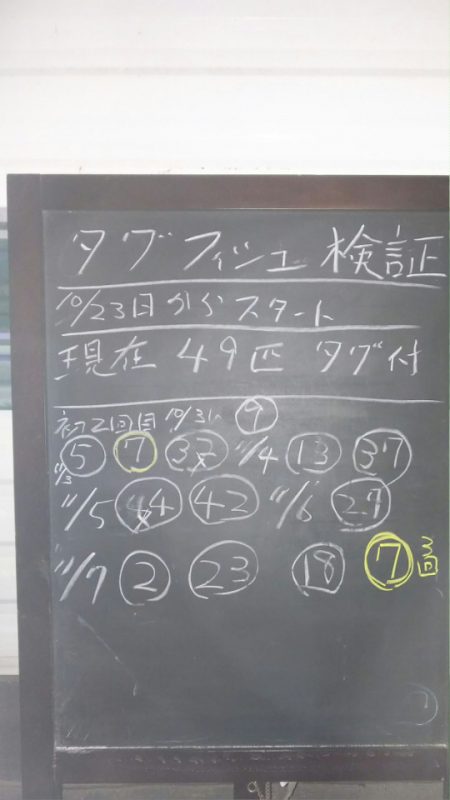 タグフィッシュ 検証
10/23日からスタート
現在 49匹 タグ付
初2回目 10/31に ⑨
11/3 ⑤ ⑦ ㉜ 11/4 ⑬ ㊲
11/5 ㊹ ㊷ 11/6
11/7 ② ㉓ ⑱ ⑦ 3回